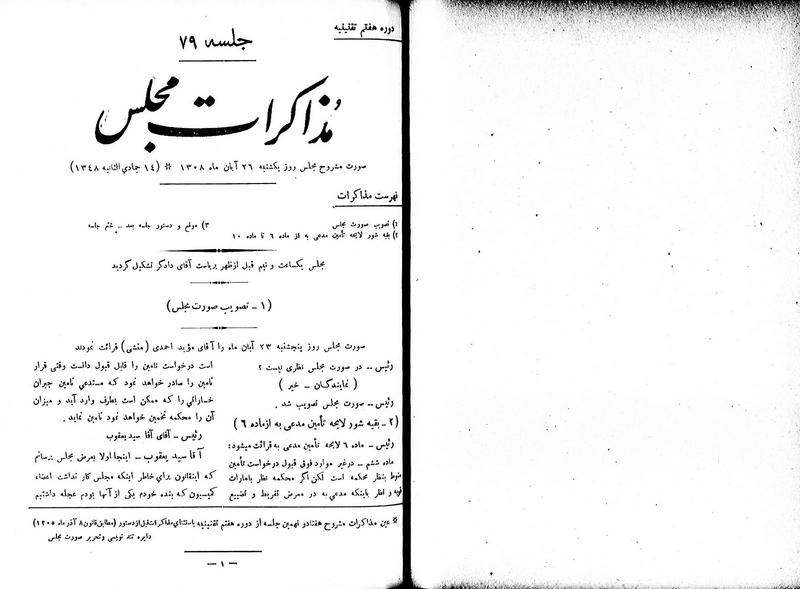 دوره هفتم تقنینیه
جلسه ۷۹
مذاکرات مجلس
صورت مشروح مجلس روز یکشنبه ۲۶ آبان ماه ۱۳۰۸ * (۱۴ جمادی الثانیه ۱۳۴۸)
فهرست مذاکرات
۱) تصویب صورت مجلس
۲) بقیه شور لایحه تأمین مدعی به از ماده ۶ تا ماده ۱۰
۳) موقع و دستور جلسه بعد – ختم جلسه
مجلس یکساعت و نیم قبل از ظهر بریاست آقای دادگر تشکیل گردید
(۱ – تصویب صورت مجلس)
صورت مجلس روز پنجشنبه ۲۳ آبان ماه را آقای مؤید احمدی (منشی) قرائت نمودند
رئیس – در صورت مجلس نظری نیست ؟
( نمایندگان – خیر )
رئیس – صورت مجلس تصویب شد .
(۲ – بقیه شور لایحه تأمین مدعی به از ماده ۶ )
رئیس – ماده ۶ لایحه تأمین مدعی به قرائت میشود:
ماده ششم – در غیر موارد فوق قبول درخواست تأمین
منوط بنظر محکمه است لکن اگر محکمه نظر بامارات
قویه و نظر باینکه مدعی به در معرض تفریط و تضییع
است درخواست تامین را قابل قبول دانست وقتی قرار
تامین را صادر خواهد نمود که مستدعی تامین جبران
خساراتی را که ممکن است بطرف وارد آید و میزان
آن را محکمه تخمین خواهد نمود تامین نماید .
رئیس – آقای آقا سید یعقوب
آقا سید یعقوب – اینجا اولا بعرض مجلس برسانم
که اینقانون برای خاطر اینکه مجلس کار نداشت اعضاء
کمیسیون که بنده خودم یکی از آنها بودم عجله داشتیم
* عین مذاکرات مشروح هفتاد و نهمین جلسه از دوره هفتم تقنینیه باستثنای مذاکرات قبل از دستور (مطابق قانون ۸ آذر ماه ۱۳۰۵)
دایره تند نویسی و تحریر صورت مجلس
– ۱ –